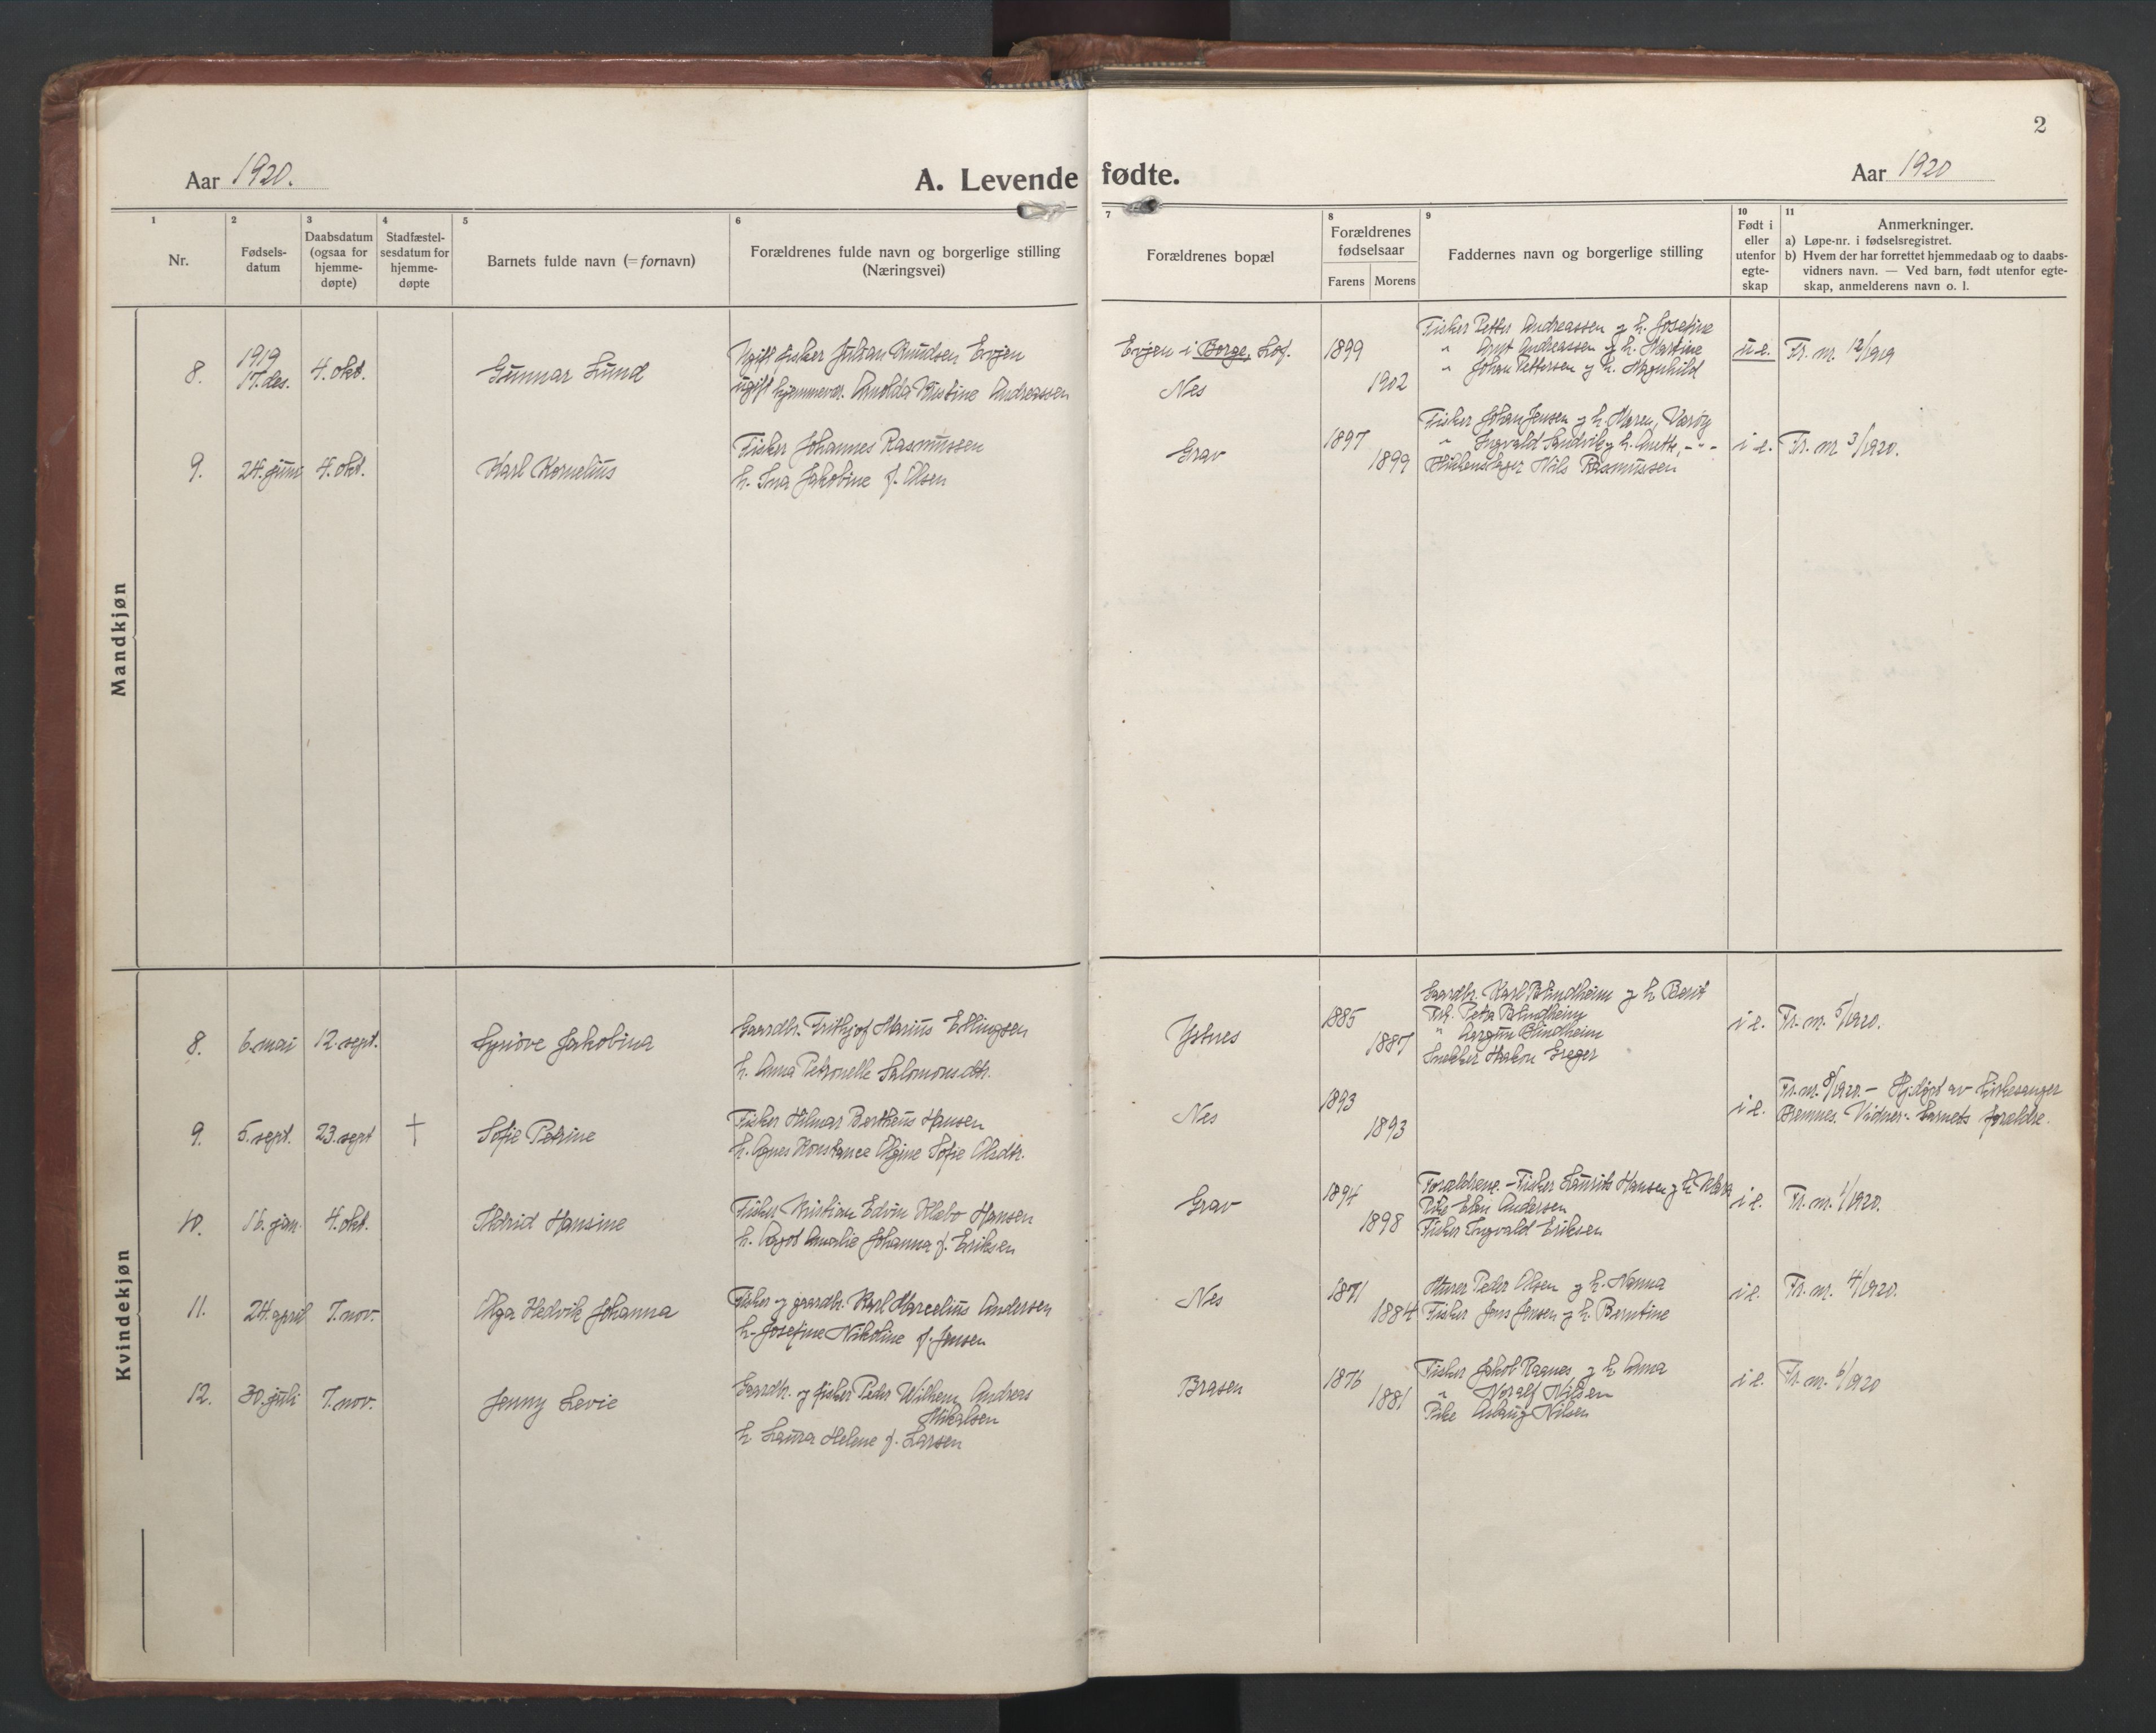 2
Aar 1920.
A. Levende fødte.
Aar 1920
1
Nr.
2
Fødsels-
datum
3
Daabsdatum
(ogsaa for
hjemme-
døpte)
4
Stadfæstel-
sesdatum for
hjemme-
døpte
5
Barnets fulde navn (= fornavn)
6
Forældrenes fulde navn og borgerlige stilling
(Næringsvei)
7
Forældrenes bopæl
8
Forældrenes
fødselsaar
Farens Morens
9
Faddernes navn og borgerlige stilling
10
Født i
eller
utenfor
egte-
skap
11
Anmerkninger.
a) Løpe-nr. i fødselsregistret.
b) Hvem der har forrettet hjemmedaab og to daabs-
vidners navn. — Ved barn, født utenfor egte-
skap, anmelderens navn o. l.
Mandkjøn
8.
1919
17. des.
4. okt.
Gunnar Lund
Ugift fisker Julian Knudsen Evjen
ugift hjemmevær. Arnolda Kristine Andreassen
Evjen i Borge, Lof.
Nes
1899
1902
Fisker Petter Andreassen g h. Josefine
" Arnt Andreassen g h. Martine
" Johan Pettersen g h. Magnhild
u e.
Fr. nr. 12/1919
9.
24. juni
4. okt.
Karl Kornelius
Fisker Johannes Rasmussen
h. Ina Jakobine f. Olsen
Grav
1897
1899
Fisker Johan Jensen g h. Maren, Værøy
" Ingvald Sandvik g h. Anette, - " -
Nils Rasmussen
i e.
Fr. nr 3/1920.
Kvindekjøn
8.
6. mai
12. sept.
Synöve Jakobina
Gaardbr. Frithjof Marius Ellingsen
h. Anna Petronelle Salomonsdtr.
Ystnes
1885
1887
Gaardbr. Karl Blindheim g h Berit
Frk. Petra Blindheim
" Blindheim
Snekker Hakon Greger
i e.
Fr. nr. 5/1920.
9.
5. sept.
23. sept
†
Sofie Petrine
Fisker Hilmar Bertheus Hansen
h. Agnes Konstance Olgine Sofie Olsdtr.
Nes
1893
1893
i e.
Fr. nr. 8/1920. — Hj.døpt av kirkesanger
Bremnes. Vidner: barnets forældre.
10.
16. jan.
4. okt.
Astrid Hansine
Fisker Kristian Edvin Klæbo Hansen
h. Agot Amalie Johanna f. Eriksen
Grav
1894
1898
Forældrene. - Fisker Laurits Hansen g h Klara
Pike Elen Andersen
Fisker Ingvald Eriksen
i e.
Fr. nr. 1/1920.
11.
24. april
7. nov.
Olga Hedvik Johanna
Fisker og gaardbr. Karl Marcelius Andersen
h. Josefine Nikoline f. Jensen
Nes
1871
1884
Murer Peder Olsen g h. Nanna
Fisker Jens Jensen g h. Berntine
i e.
Fr. nr. 4/1920.
12.
30. juli
7. nov.
Jenny Levie
Gaardbr. og fisker Peder Wilhem Andreas
Mikalsen
h Laura Helene f. Larsen
Brasen
1876
1881
Fisker Jakob Raanes g h Anna
" Noralf Nilsen
Pike Aslaug Nilsen
i e.
Fr. nr. 6/1920